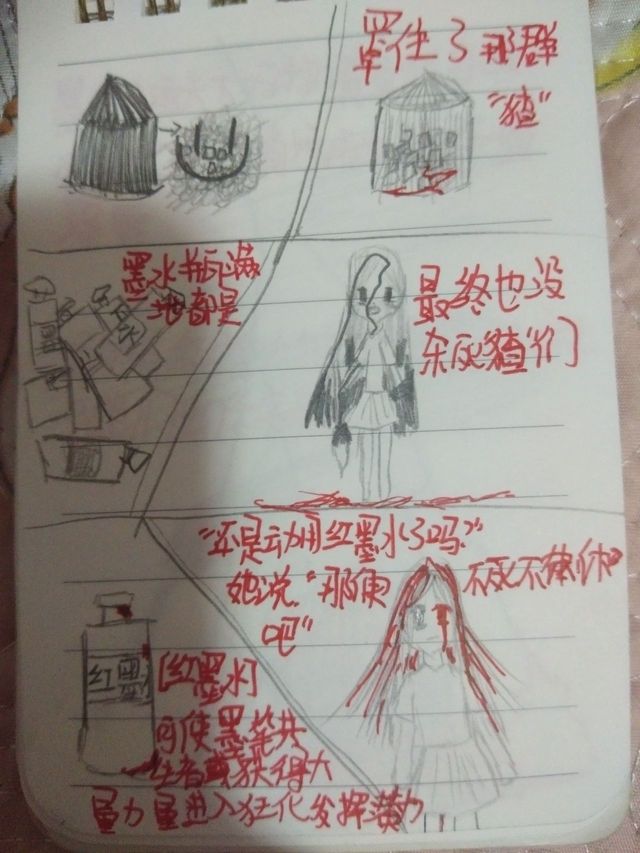 罩住了那群
“猹”
墨水瓶满
地都是
墨水
最终也没
杀死猹们
“还是动用红墨水了吗.”
她说.“那便
吧”
不死不休
红墨
[红墨水]
可使墨笼共
生者或获得大
量力量进入狂化发挥潜力